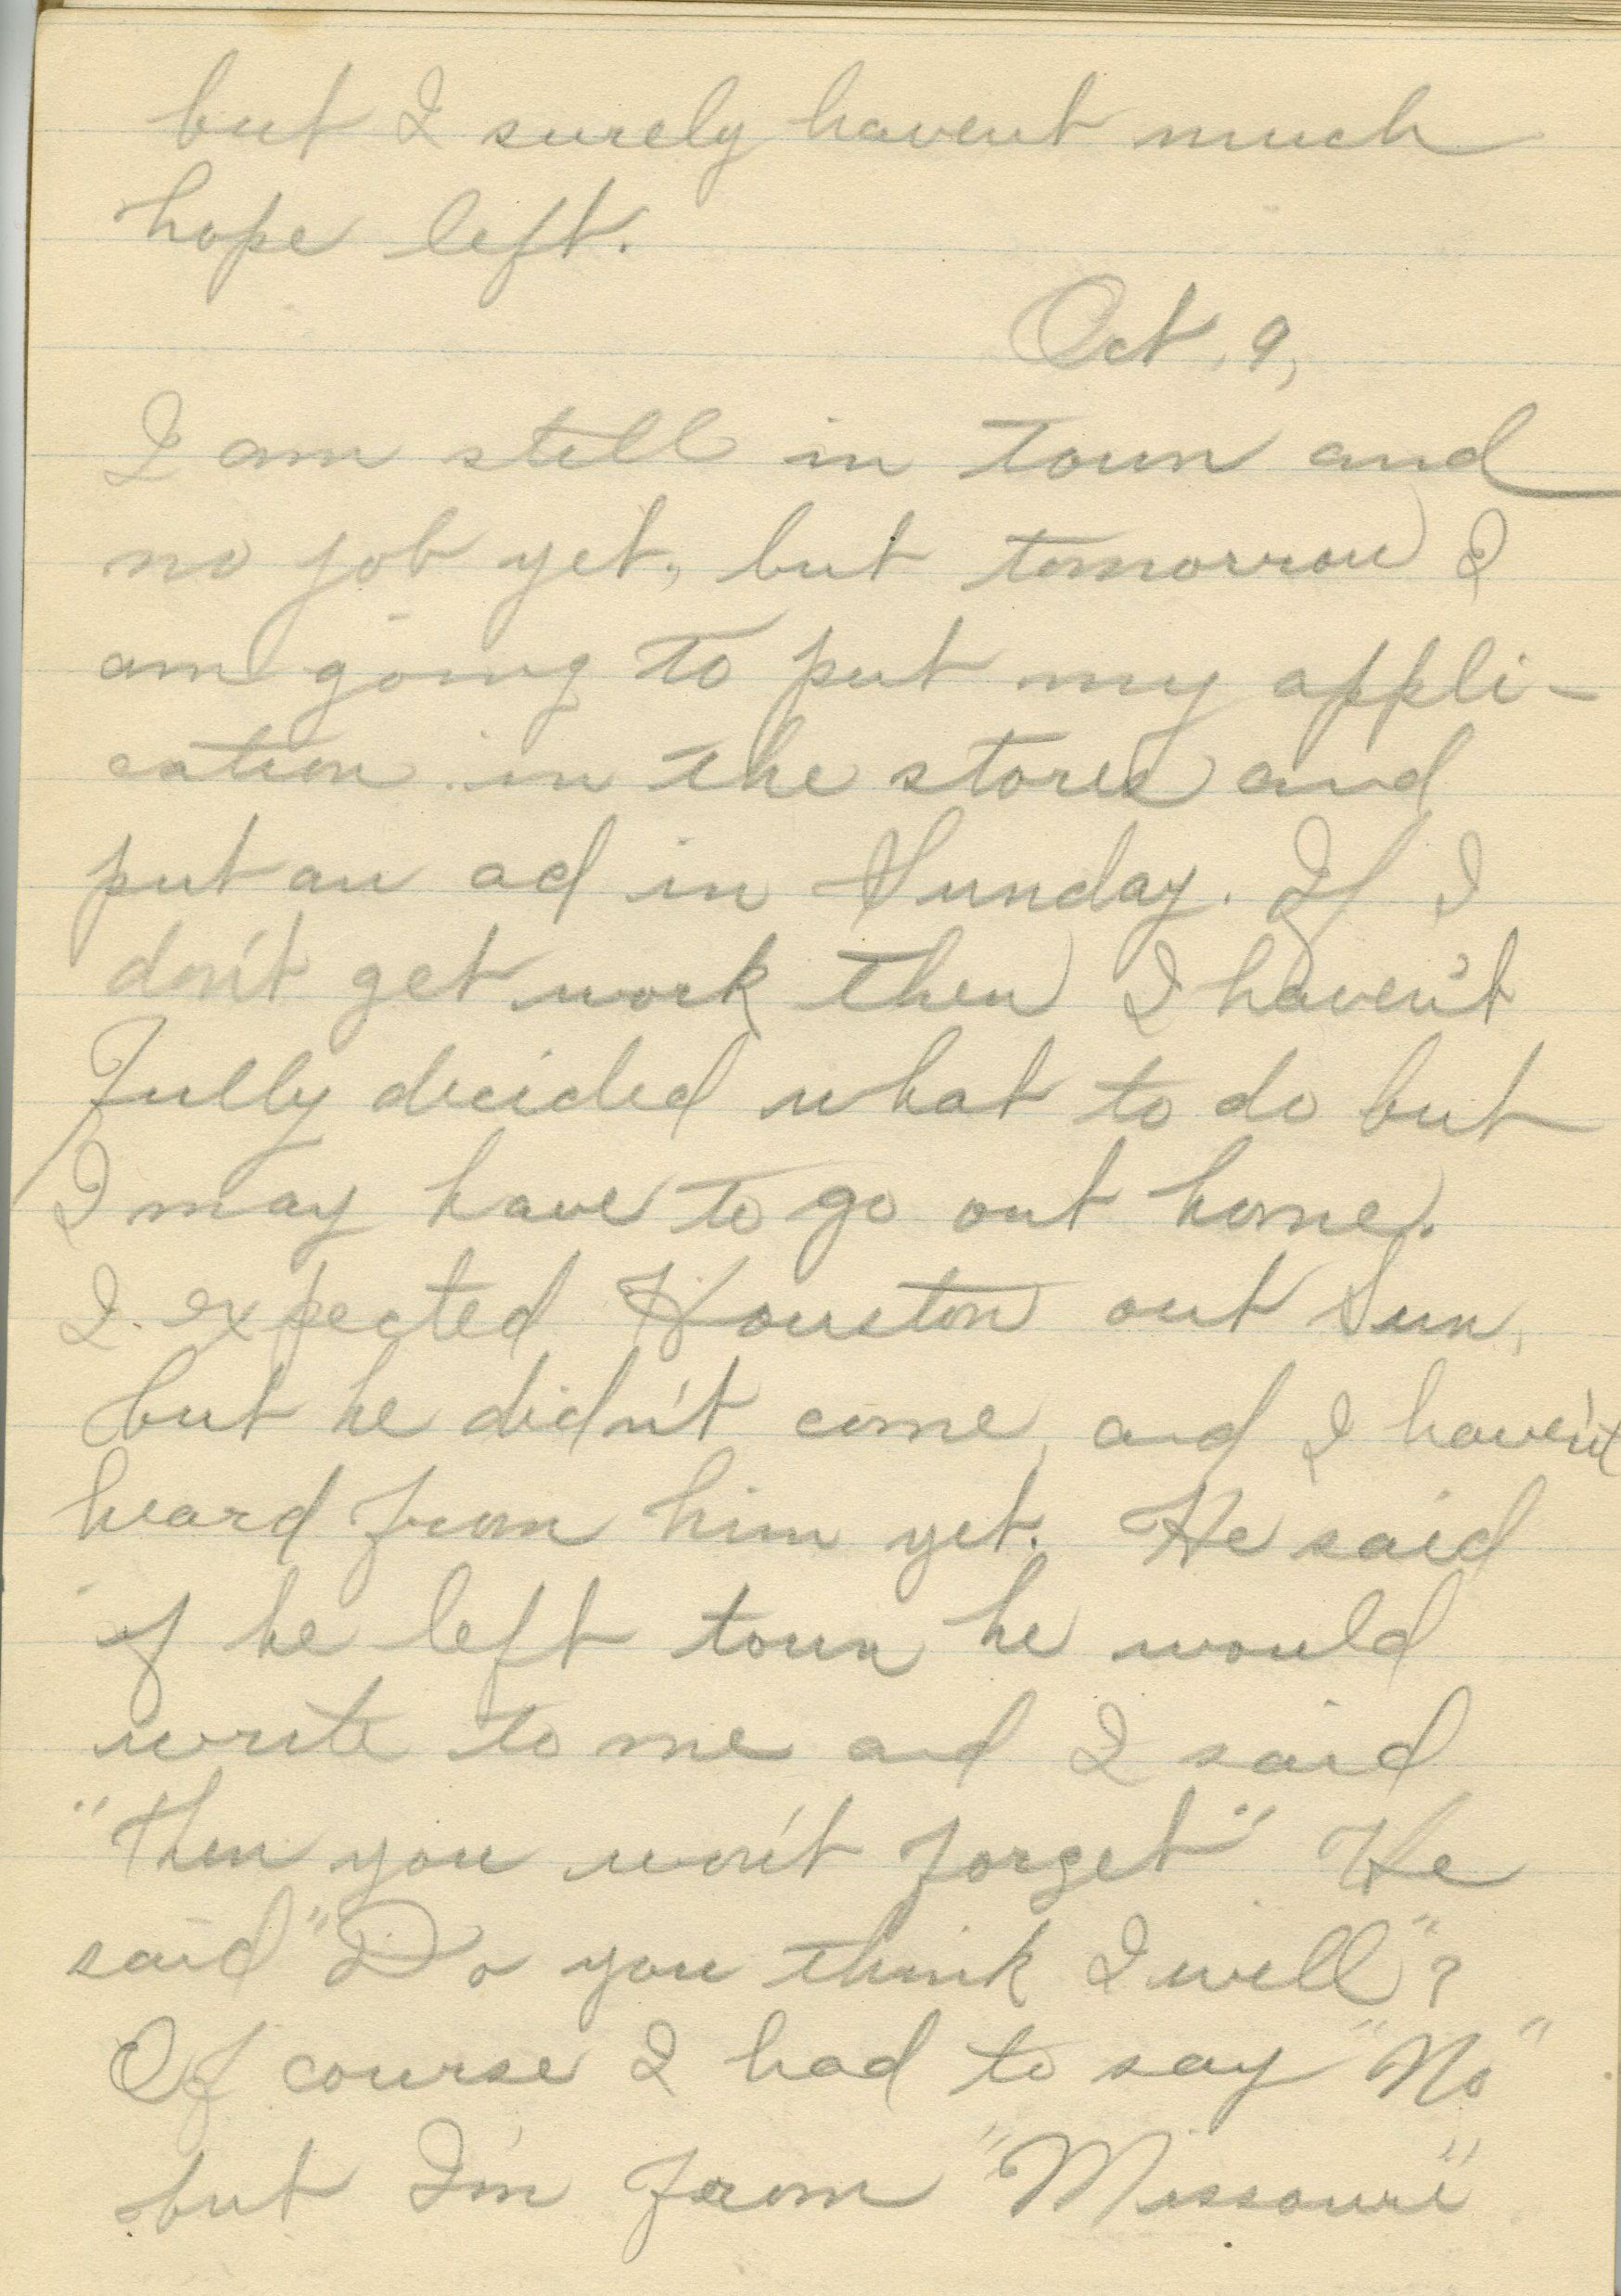 but I surely havent much
hope left.
Oct, 9,
I am still in town and
no job yet, but tomorrow I
am going to put my appli-
cation in the stores and
put an ad in Sunday. If I
don't get work then I haven't
fully decided what to do but
I may have to go out home.
I expected Houston out Sun,
but he didn't come, and I haven't
heard from him yet. He said
if he left town he would
write to me and I said
"Then you won't forget" He
said "Do you think I will"?
Of course I had to say "No"
but I'm from "Missouri"